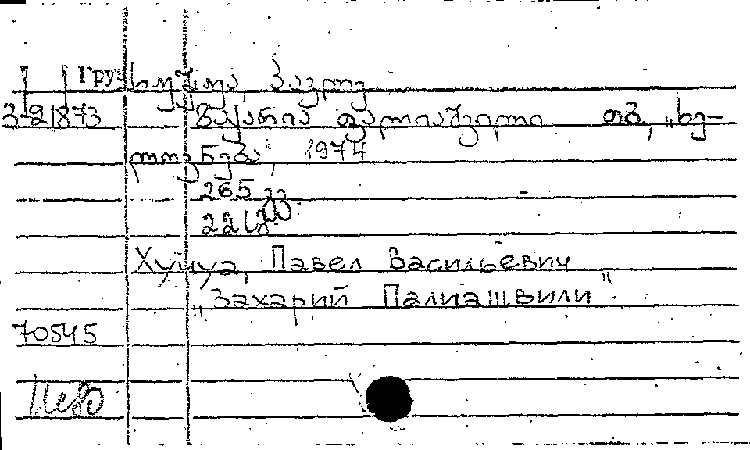 Груз ხუჭუა, პავლე
3-21873 ზაქარია ფალიაშვილი თბ., „ხე-
ლოვნება", 1974
265 გვ.
22 სმ
Хучуа, Павел Васильевич
"Захарий Палиашвили"
70545